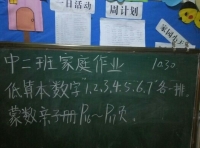 一日活动
周计划
家园
中二班家庭作业 1030
低算本数字"1.2.3.4.5.6.7"各一班.
蒙数亲子册P10~P11页.